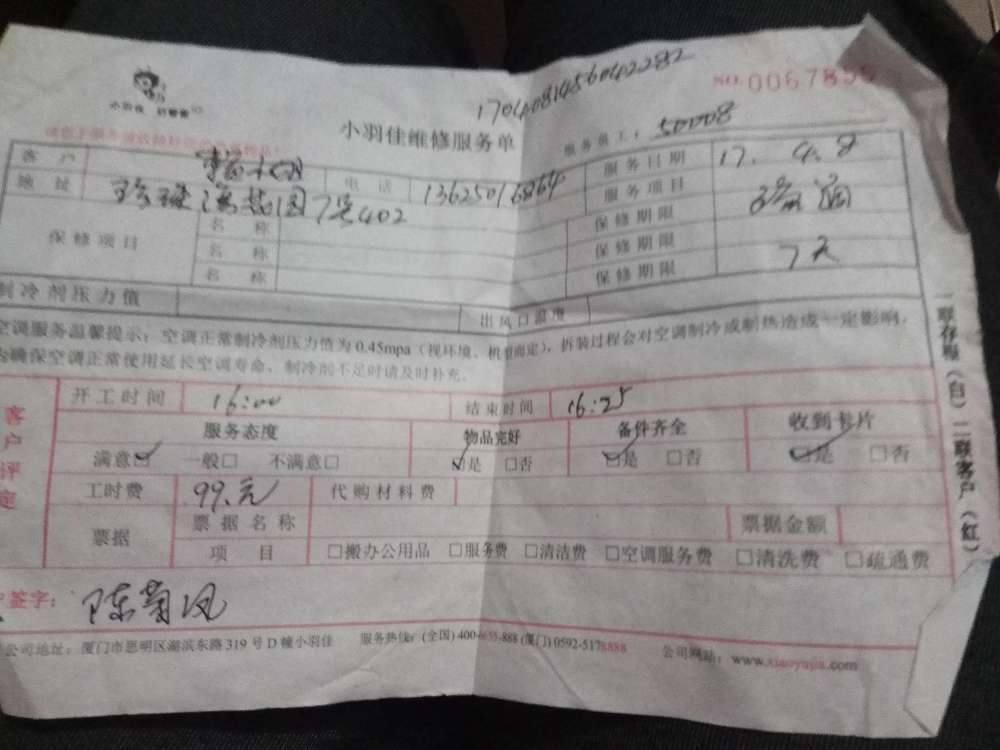 小羽佳 好管家
17040814560402282
NO. 0067855
小羽佳维修服务单
服务员工：50008
客户 电话 13625016864 服务日期 17.4.8
地址 7号402 服务项目
保修项目 名称 保修期限
名称 保修期限 7天
名称 保修期限
制冷剂压力值 出风口温度
空调服务温馨提示：空调正常制冷剂压力值为0.45mpa（视环境、机型而定），拆装过程会对空调制冷或制热造成一定影响，
为确保空调正常使用延长空调寿命、制冷剂不足时请及时补充。
客户评定
开工时间 16:00 结束时间 16:25
服务态度 物品完好 备件齐全 收到卡片
满意☑ 一般□ 不满意□ ☑是 □否 ☑是 □否 ☑是 □否
工时费 99.元 代购材料费
票据 票据名称 票据金额
项目 □搬办公用品 □服务费 □清洁费 □空调服务费 □清洗费 □疏通费
签字：陈菊凤
公司地址：厦门市思明区湖滨东路319号D幢小羽佳 服务热线：(全国) 400-6655-888 (厦门) 0592-5178888 公司网站：www.xiaoyujia.com
一联存根（白）二联客户（红）